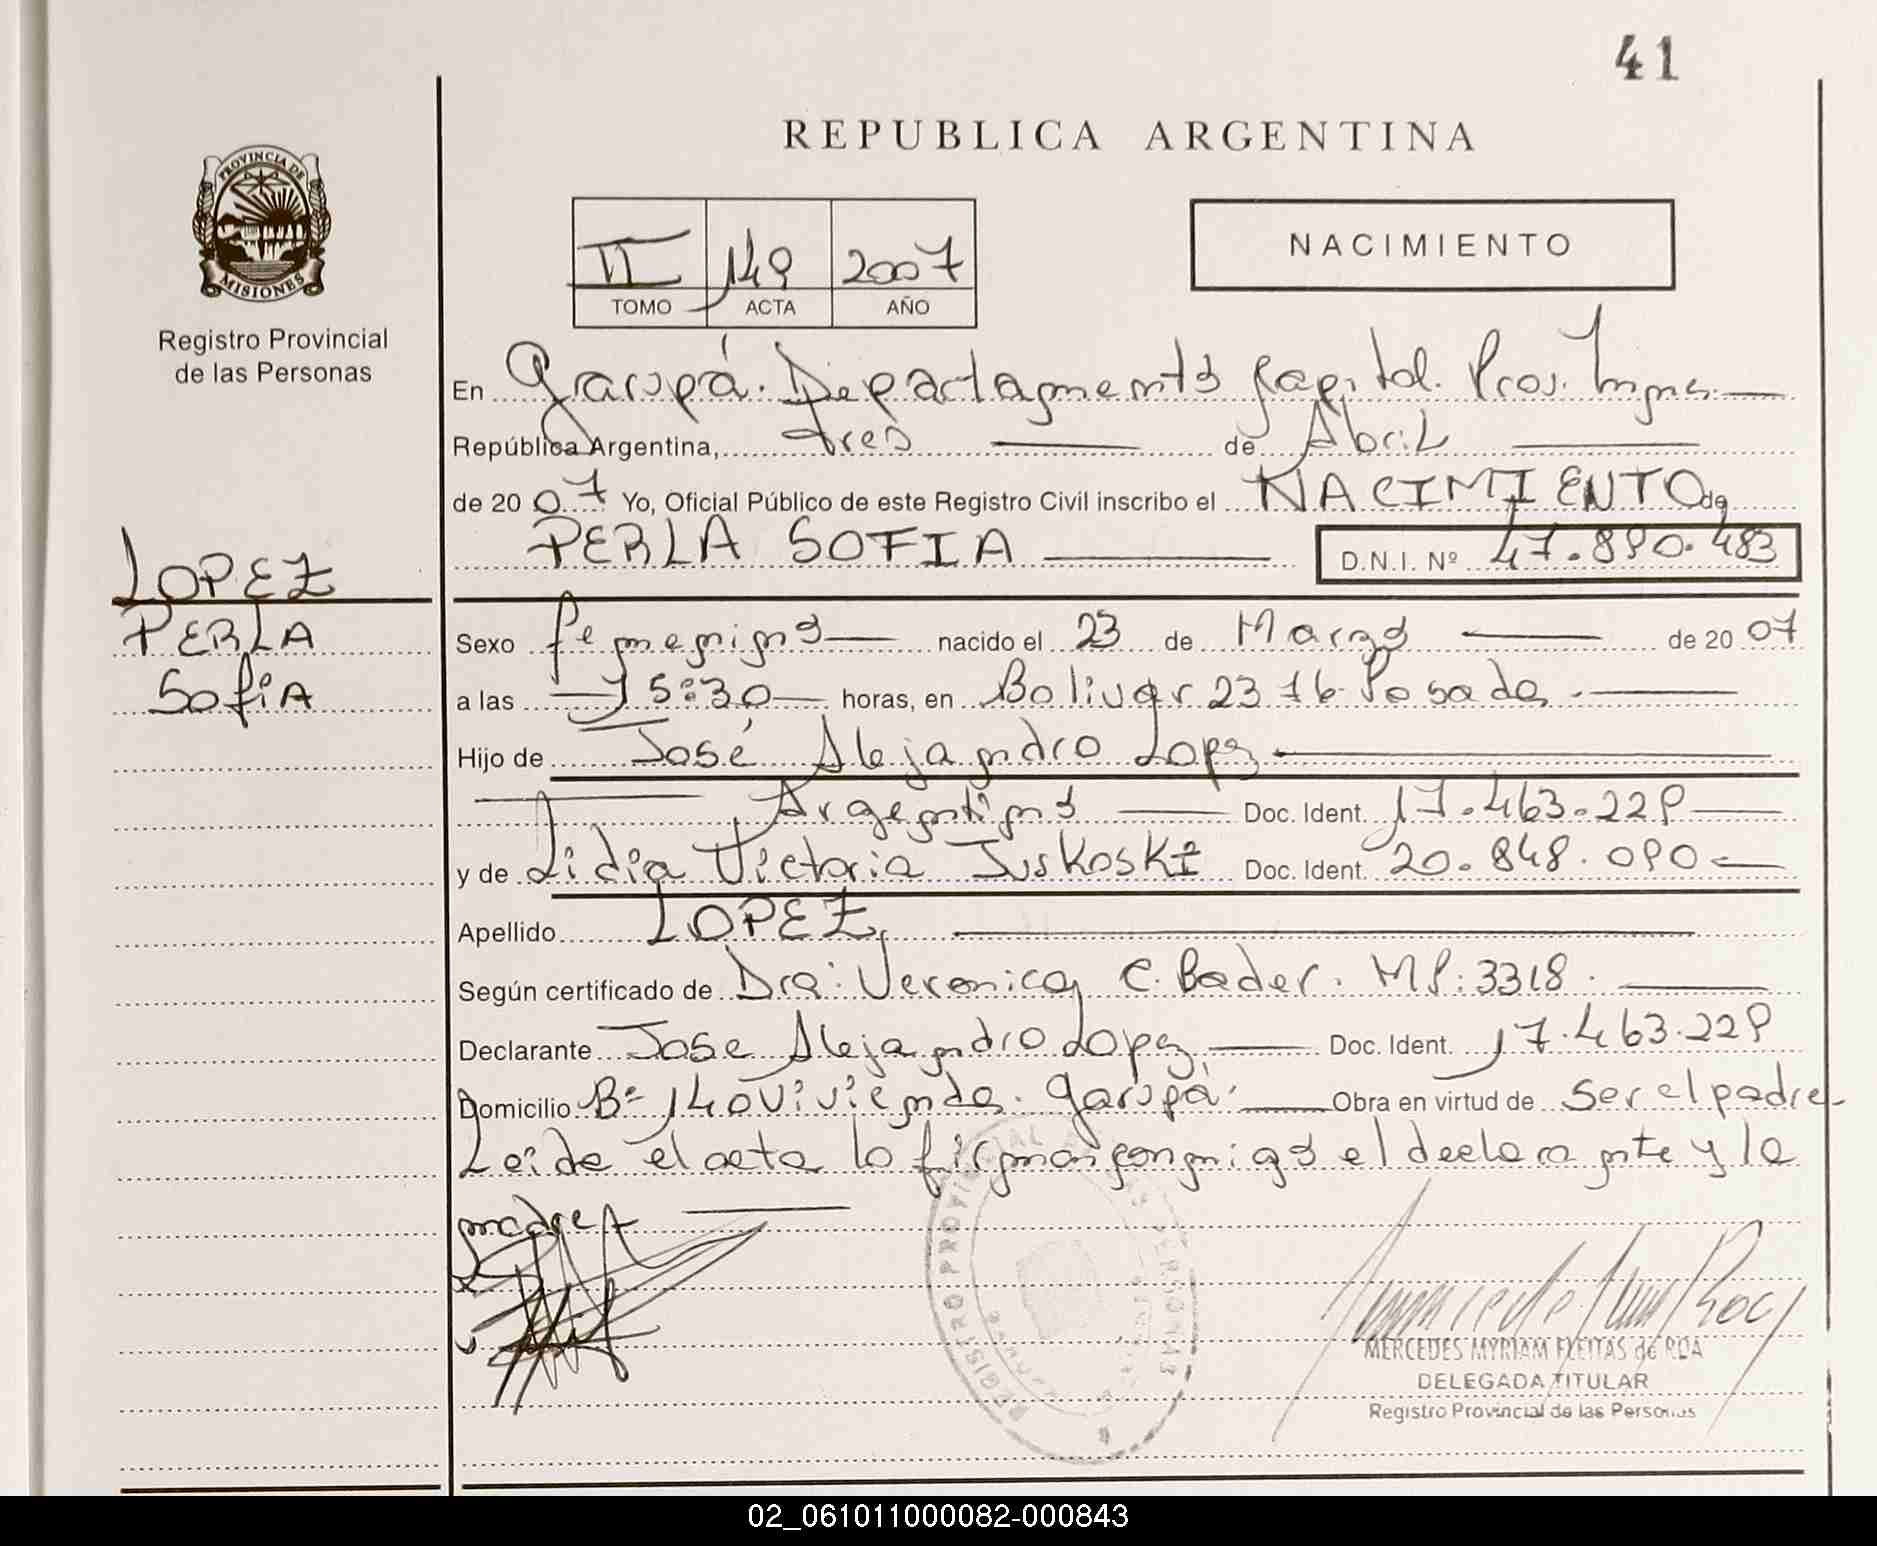 41
REPUBLICA ARGENTINA
PROVINCIA DE
MISIONES
Registro Provincial
de las Personas
II 149 2007
TOMO ACTA AÑO
NACIMIENTO
En Garupá. Departamento Capital. Prov. Mnes.
República Argentina, tres de Abril
de 2007 Yo, Oficial Público de este Registro Civil inscribo el NACIMIENTO de
PERLA SOFIA D.N.I. Nº 47.890.483
LOPEZ
PERLA
SofiA
Sexo femenino nacido el 23 de Marzo de 2007
a las 15:30 horas, en Bolivar 2376 Posadas.
Hijo de José Alejandro Lopez
Argentino Doc. Ident. 17.463.229
y de Lidia Victoria Juskoski Doc. Ident. 20.848.090
Apellido LOPEZ
Según certificado de Dra: Veronica C. Bader. MP: 3318.
Declarante Jose Alejandro Lopez Doc. Ident. 17.463.229
Domicilio Bº 140 Viviendas. Garupá. Obra en virtud de ser el padre
Leida el acta la firman conmigo el declarante y la
madre
REGISTRO PROVINCIAL DE LAS PERSONAS
MERCEDES MYRIAM FLEITAS de ROA
DELEGADA TITULAR
Registro Provincial de las Personas
02_061011000082-000843